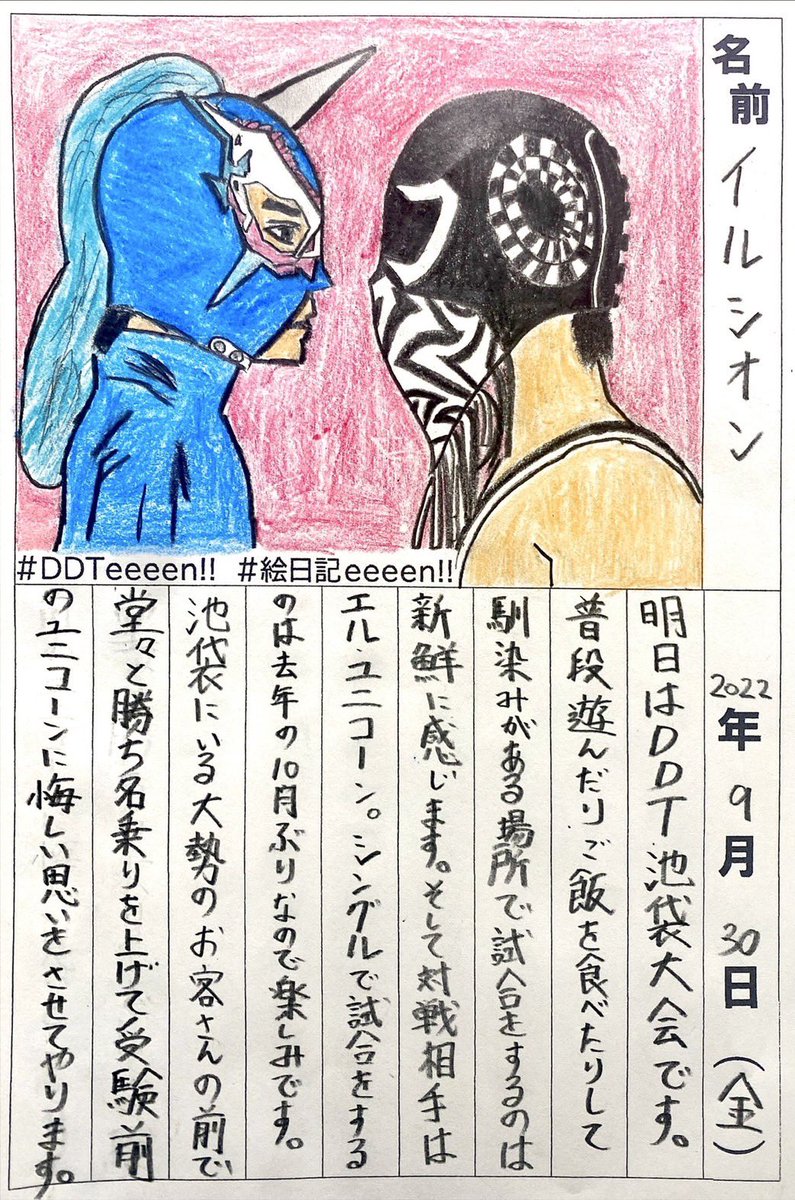 名前 イルシオン
#DDTeeeen!! #絵日記eeeen!!
2022年 9月 30日 (金)
明日はDDT池袋大会です。
普段遊んだりご飯を食べたりして
馴染みがある場所で試合をするのは
新鮮に感じます。そして対戦相手は
エル・ユニコーン。シングルで試合をする
のは去年の10月ぶりなので楽しみです。
池袋にいる大勢のお客さんの前で
堂々と勝ち名乗りを上げて受験前
のユニコーンに悔しい思いをさせてやります。